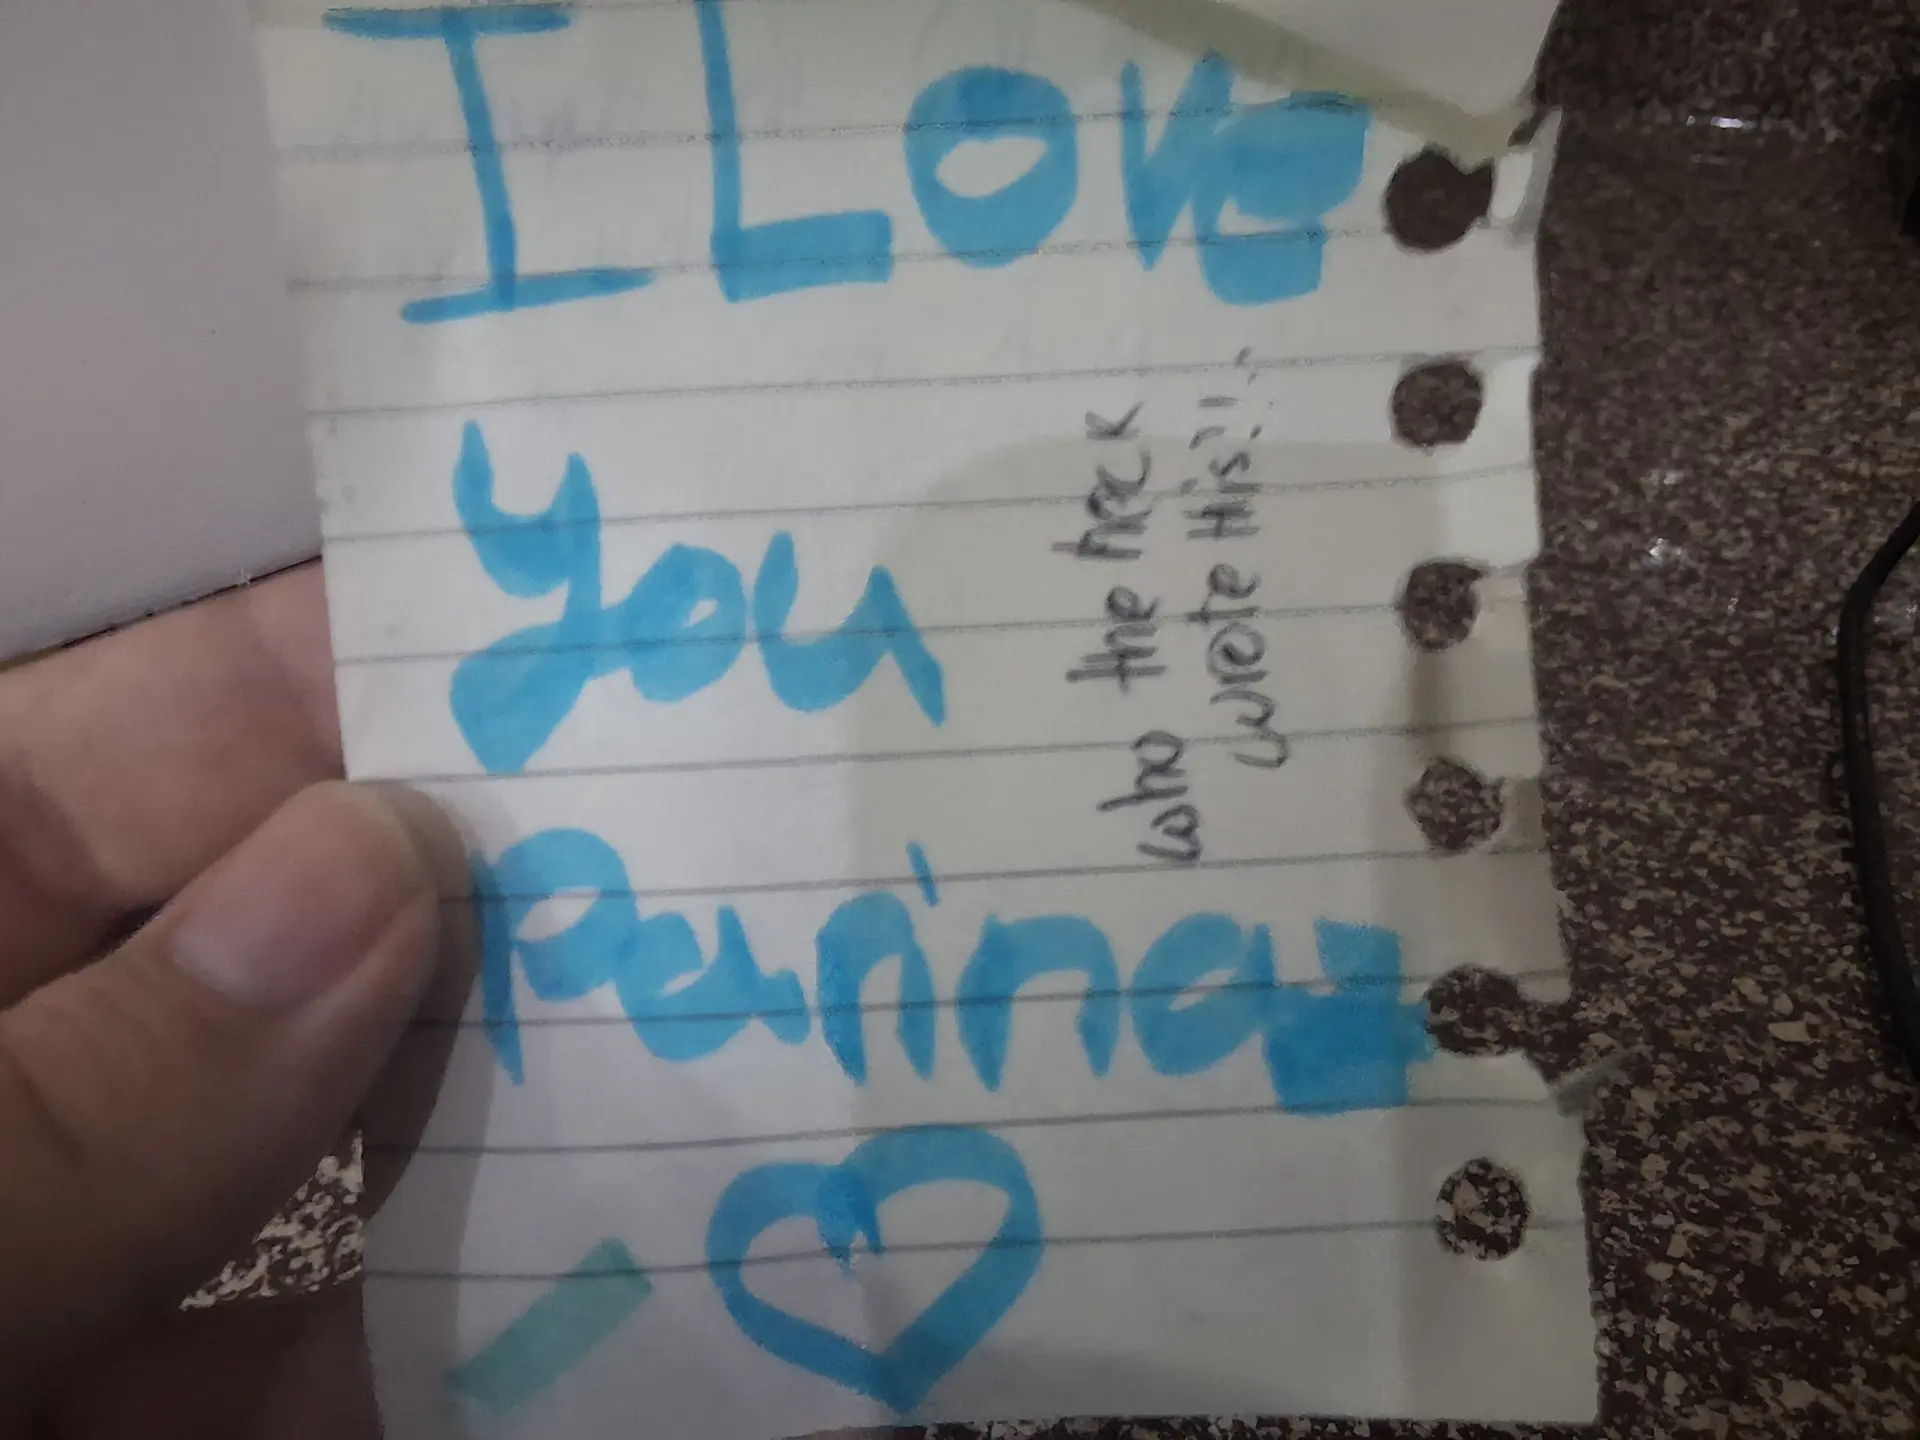 I Love
you
Parinaz
who the heck
wrote this!!!